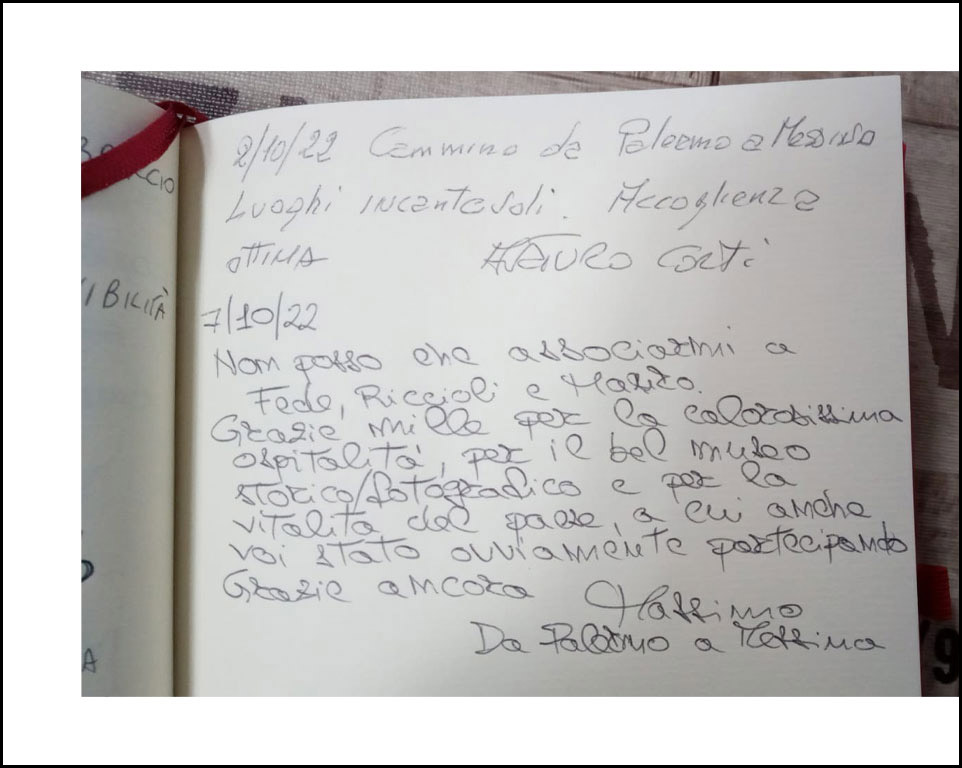 BO
CCIO
IBILITÀ
A
2/10/22 Cammino da Palermo a Messina
Luoghi incantevoli. Accoglienza
OTTIMA MAURO CORTI
7/10/22
Non posso che associarmi a
Fede, Riccioli e Marito.
Grazie mille per la calorosissima
ospitalità, per il bel museo
storico/fotografico e per la
vitalità del paese, a cui anche
voi stato ovviamente partecipando
Grazie ancora Massimo
Da Palermo a Messina
9